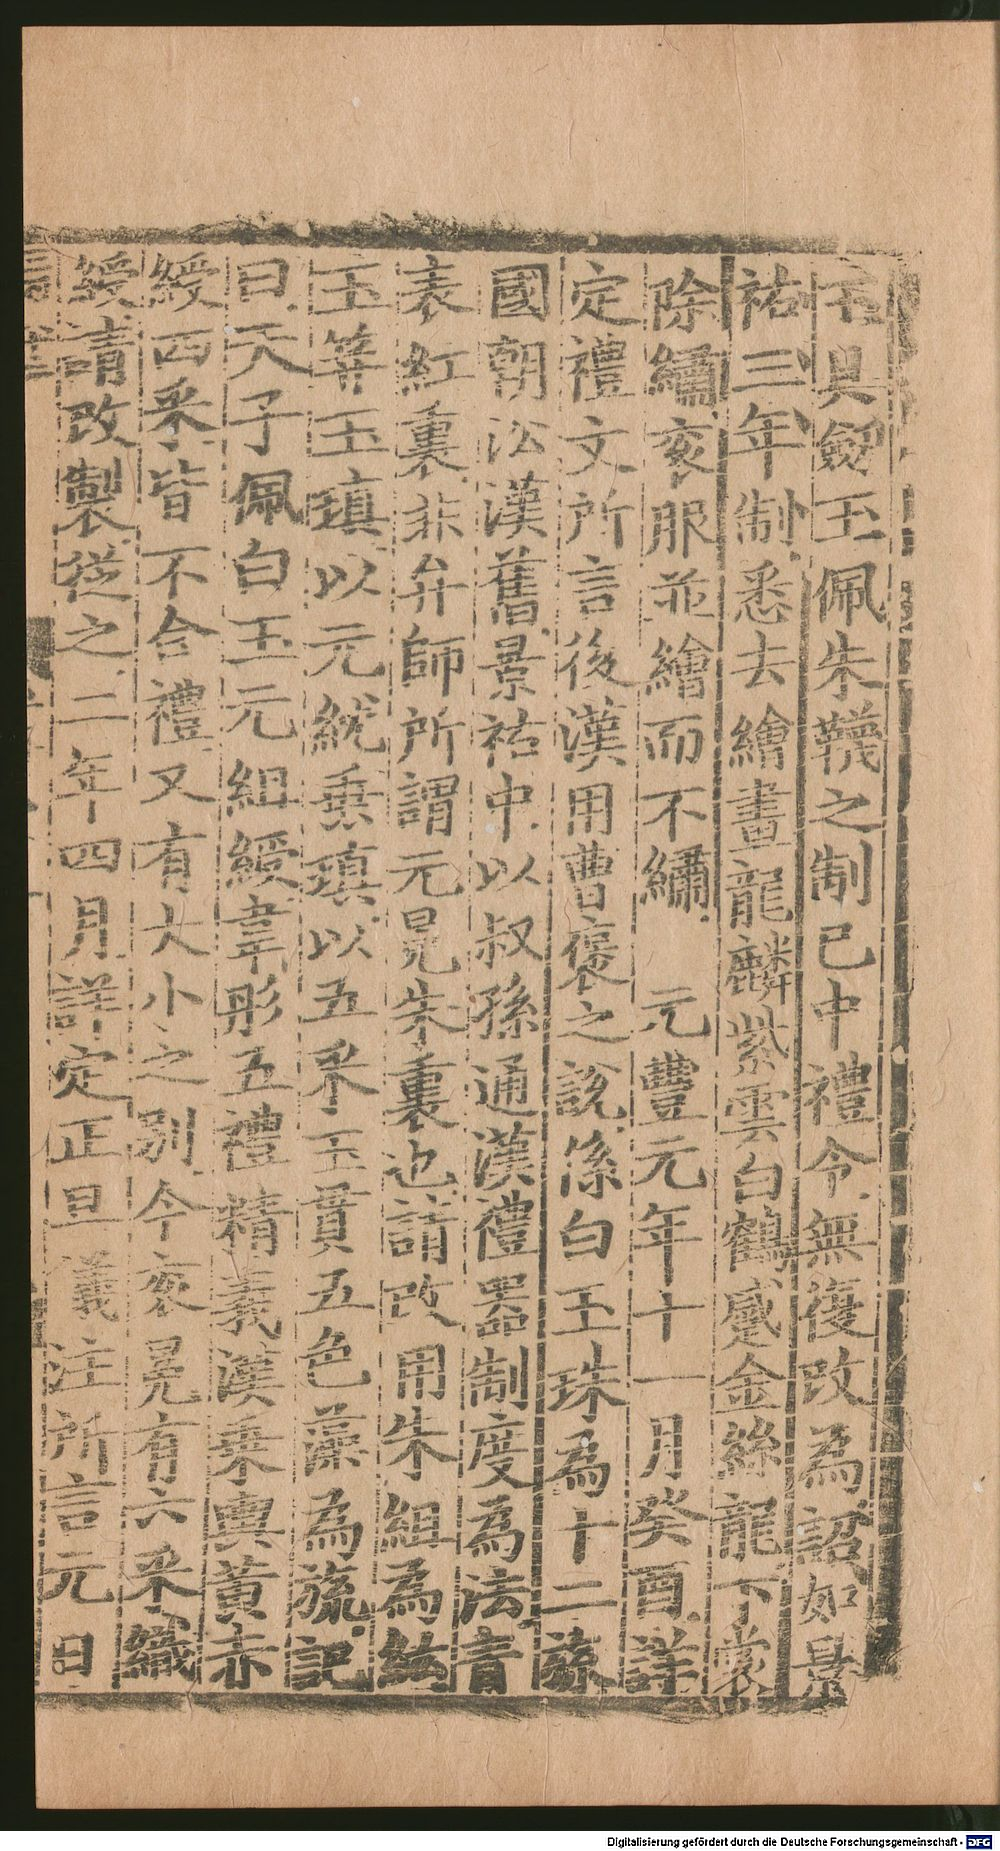 玉具劔玉佩朱韈之制已中禮令無復改為詔如景
祐三年制悉去繪畫龍麟紫雲白鶴感金絲龍下裳
除繡衮服並繪而不繡 元豐元年十一月癸酉詳
定禮文所言後漢用曹褒之說係白玉珠為十二旒
國朝沿漢舊景祐中以叔孫通漢禮器制度為法青
表紅裏非弁師所謂元冕朱裏也請改用朱組為紘
玉筓玉瑱以元紞垂瑱以五釆玉貫五色藻為旒記
曰天子佩白玉元組綬韋彤五禮精義漢乘輿黃赤
綬四釆皆不合禮又有大小之別今衮冕有六釆織
綬請改製從之二年四月詳定正旦儀注所言元日
Digitalisierung gefördert durch die Deutsche Forschungsgemeinschaft - DFG